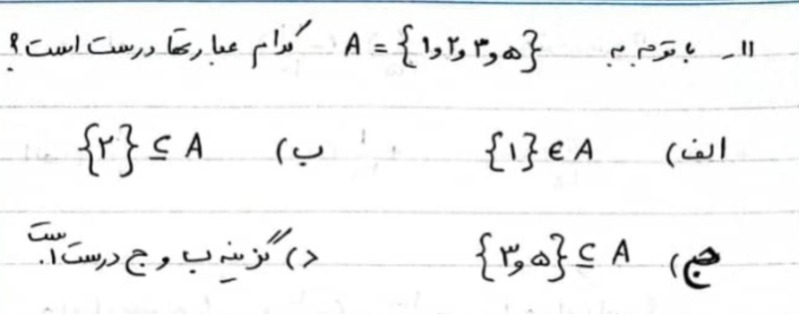 ۱۱_ با توجه به A = {۱و۲و۳و۵} کدام عبارتها درست است؟
الف) {۱} ∈ A ب) {۲} ⊆ A
ج) {۳و۵} ⊆ A د) گزینه ب و ج درست است.